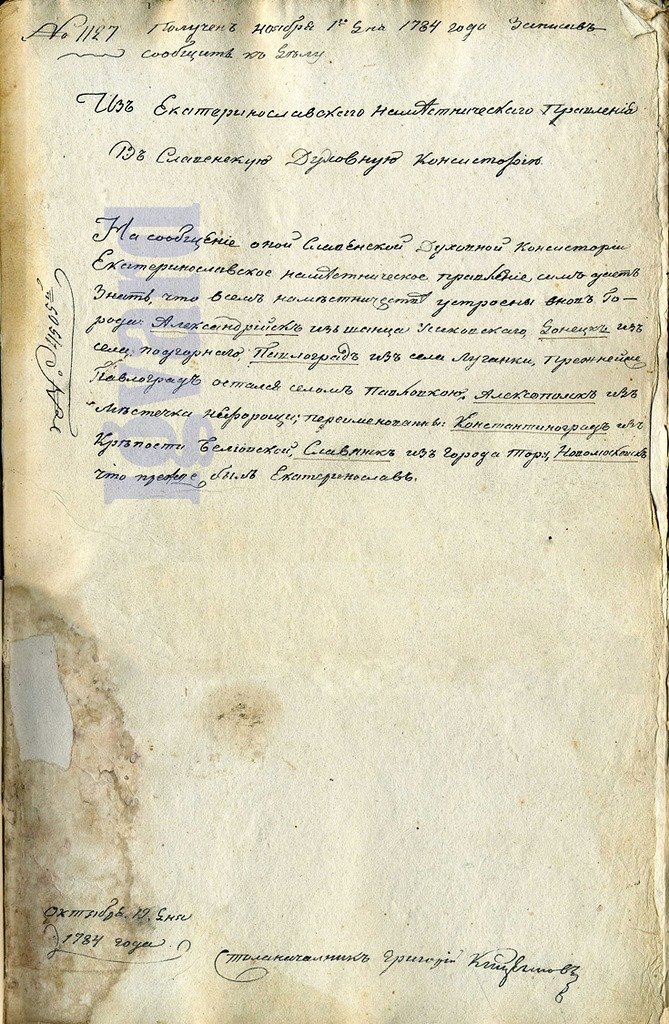 № 1127 Полученъ ноября 1го дня 1784 года Записавъ
сообщить къ дѣлу
Изъ Екатеринославскаго намѣстническаго Правленія
Въ Славенскую Духовную Консисторію
На сообщеніе оной Славенской Духовной Консисторіи
Екатеринославское намѣстническое правленіе симъ даетъ
Знать, что в семъ намѣстничествѣ устроены вновь Го-
рода: Александрійскъ изъ шанца Усиковскаго, Донецкъ изъ
села, подгорнаго Павлоградъ изъ села Луганки, прежней же
Павлоградъ остался селомъ Павловкою, Алексополь изъ
мѣстечка нефорощи; переименованны: Константиноградъ изъ
Крѣпости Белiовской, Славянскъ изъ города Тору, Новомосковскъ
что прежде былъ Екатеринославъ.
№ 15051
октября 19 дня
1784 года
Столоначалникъ григорій
lgvard